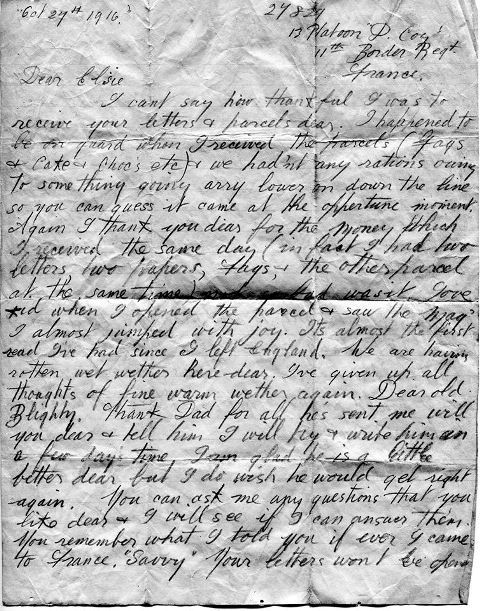 "Oct 29th 1916."
27829
13 Platoon "D. Coy"
11th Border Regt
France.
Dear Elsie
I cant say how thankful I was to
receive your letters & parcels dear. I happened to
be on guard when I received the parcels (fags
& Cake & Choc's etc) & we had'nt any rations owing
to something going arry lower on down the line
so you can guess it came at the oppertune moment
Again I thank you dear for the money which
I received the same day (in fact I had two
letters, two papers, fags, & the other parcel
at the same time)
when I opened the parcel & saw the "Mag"
I almost jumped with joy. Its almost the first
read I've had since I left England. We are having
rotten wet wether here dear. I've given up all
thoughts of fine warm wether again. Dear old
Blighty. Thank Dad for all hes sent me will
you dear & tell him I will try & write him in
a few days time I am glad he is a little
better dear but I do wish he would get right
again. You can ask me any questions that you
like dear & I will see if I can answer them.
You remember what I told you if ever I came
to France. "Savvy" Your letters wont be opened